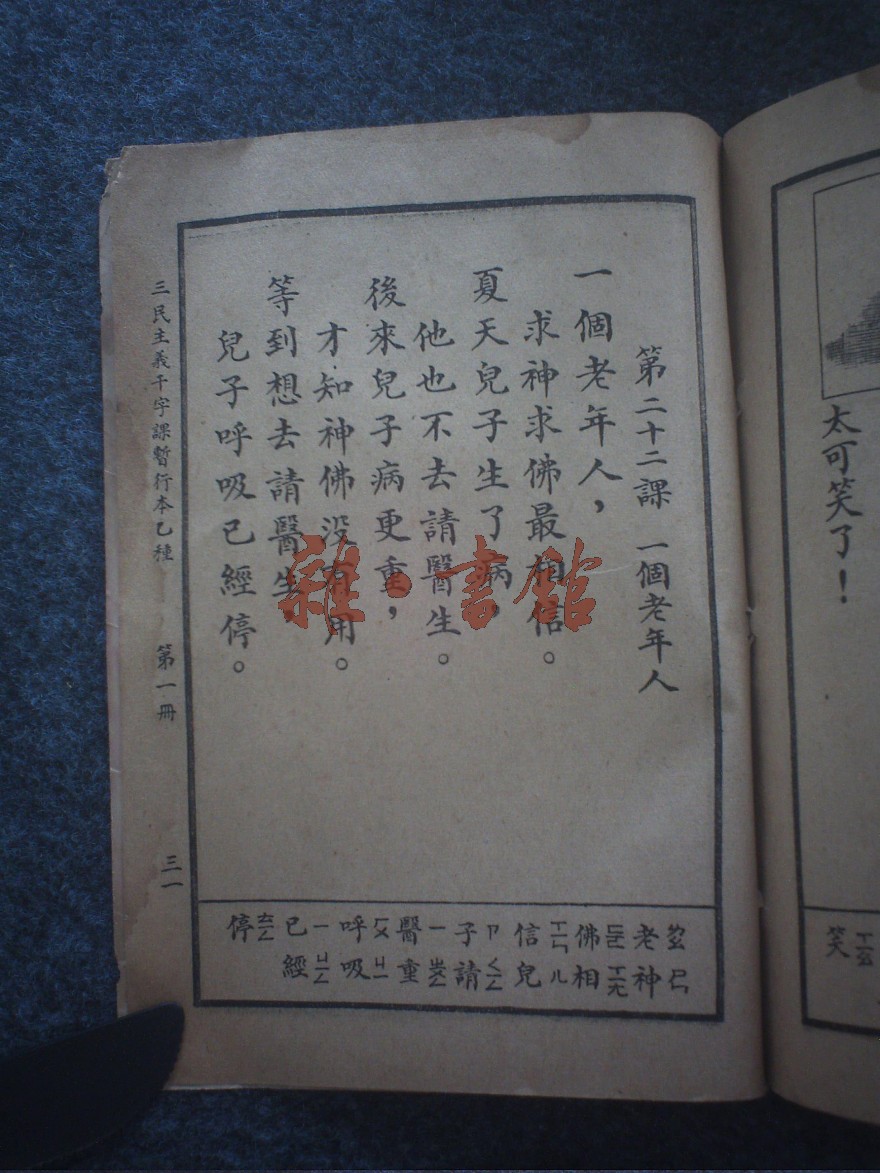 太可笑了！
笑
ㄒㄧㄠ
第二十二課 一個老年人
一個老年人，
求神求佛最相信。
夏天兒子生了病，
他也不去請醫生。
後來兒子病更重，
才知神佛没有用。
等到想去請醫生，
兒子呼吸已經停。
老神
佛相
信兒
子請
醫重
呼吸
已經
停
三民主義千字課暫行本乙種 第一冊 三一
雜·書館